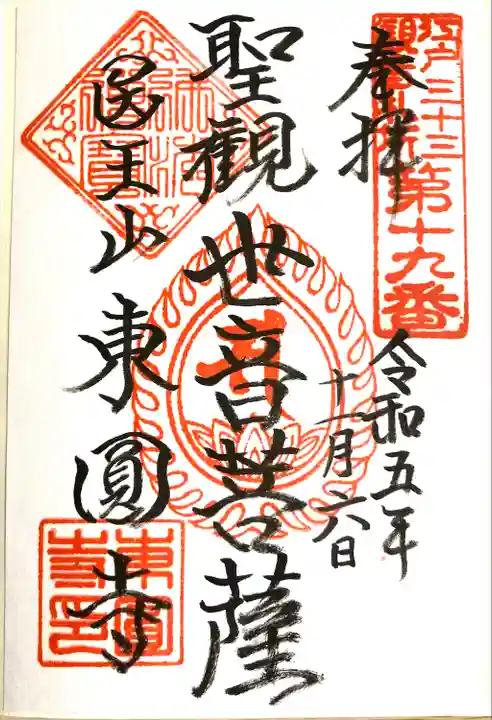 江戸三十三
観音札所第十九番
奉拝
令和五年
十一月六日
聖観世音菩薩
医王山東圓寺
東圓寺印